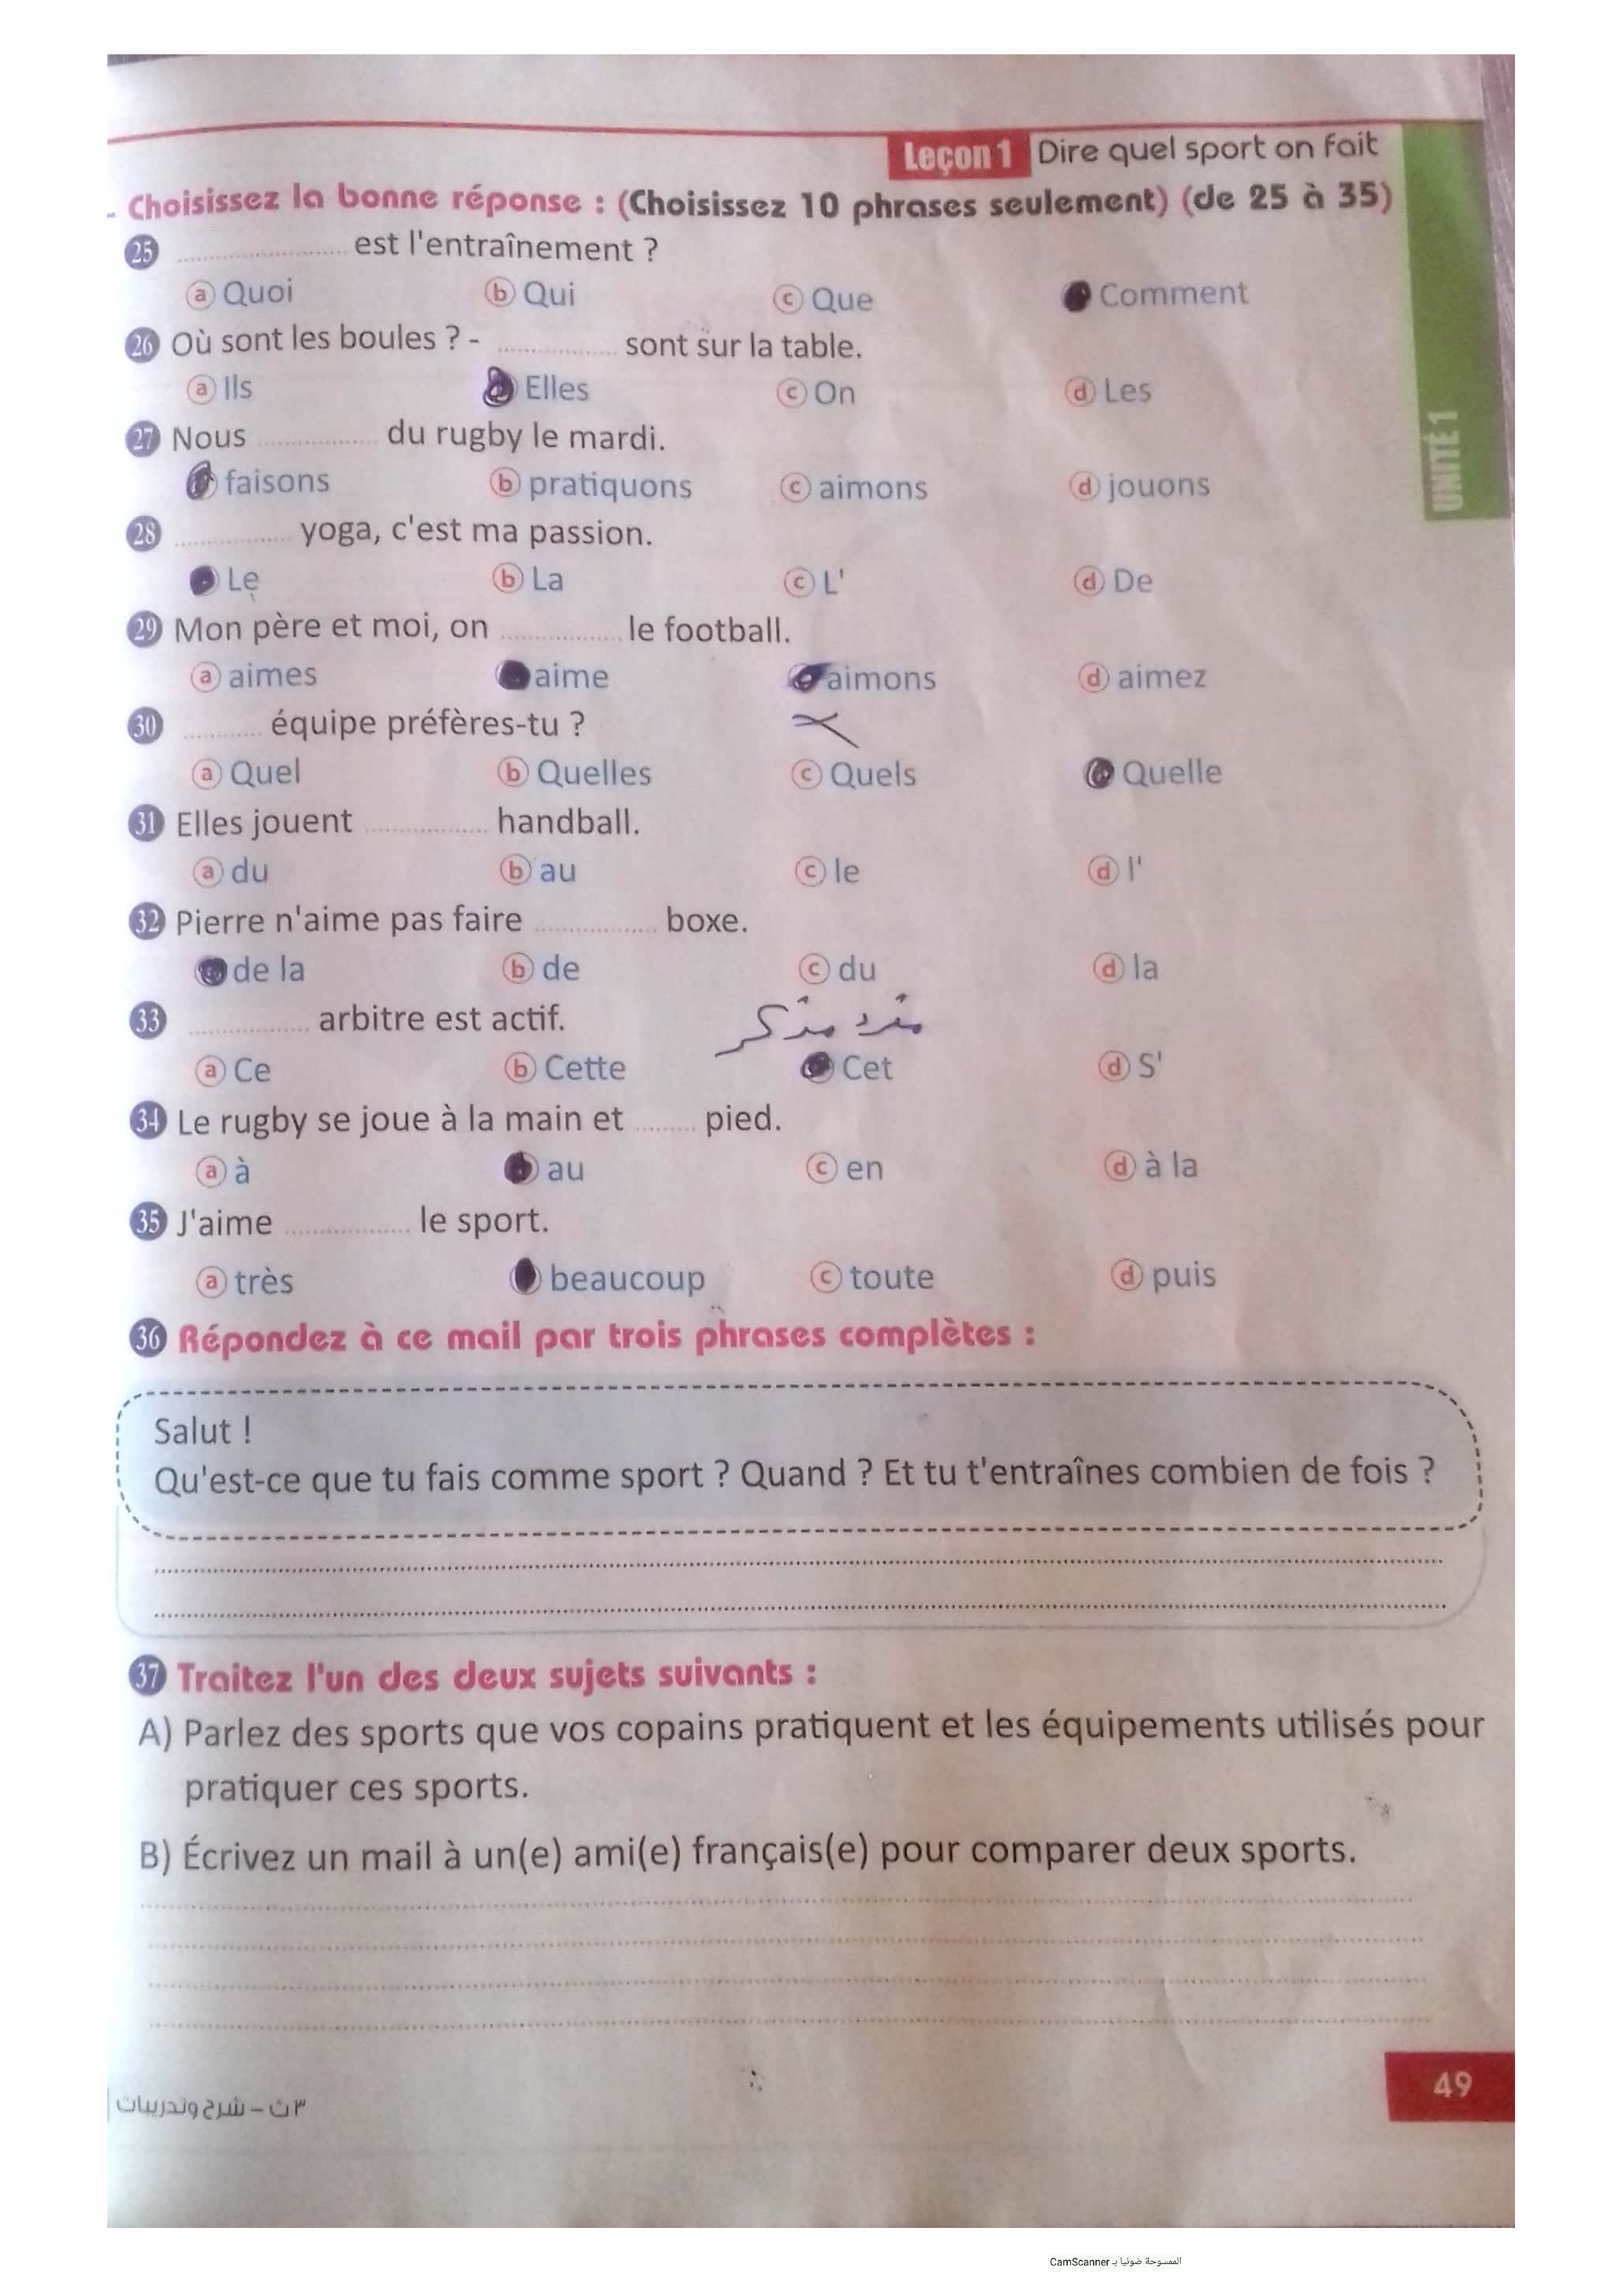 Leçon 1 Dire quel sport on fait
Choisissez la bonne réponse : (Choisissez 10 phrases seulement) (de 25 à 35)
25 .................... est l'entraînement ?
a Quoi b Qui c Que Comment
26 Où sont les boules ? - ................ sont sur la table.
a Ils Elles c On d Les
27 Nous ................ du rugby le mardi.
faisons b pratiquons c aimons d jouons
28 ................ yoga, c'est ma passion.
Le b La c L' d De
29 Mon père et moi, on ................ le football.
a aimes aime aimons d aimez
30 .......... équipe préfères-tu ?
a Quel b Quelles c Quels Quelle
31 Elles jouent ................ handball.
a du b au c le d l'
32 Pierre n'aime pas faire ................ boxe.
de la b de c du d la
33 ................ arbitre est actif.
مفرد مذكر
a Ce b Cette Cet d S'
34 Le rugby se joue à la main et ........ pied.
a à au c en d à la
35 J'aime ................ le sport.
a très beaucoup c toute d puis
36 Répondez à ce mail par trois phrases complètes :
Salut !
Qu'est-ce que tu fais comme sport ? Quand ? Et tu t'entraînes combien de fois ?
37 Traitez l'un des deux sujets suivants :
A) Parlez des sports que vos copains pratiquent et les équipements utilisés pour
pratiquer ces sports.
B) Écrivez un mail à un(e) ami(e) français(e) pour comparer deux sports.
UNITÉ 1
49
٣ ث – شرح وتدريبات
الممسوحة ضوئيا بـ CamScanner